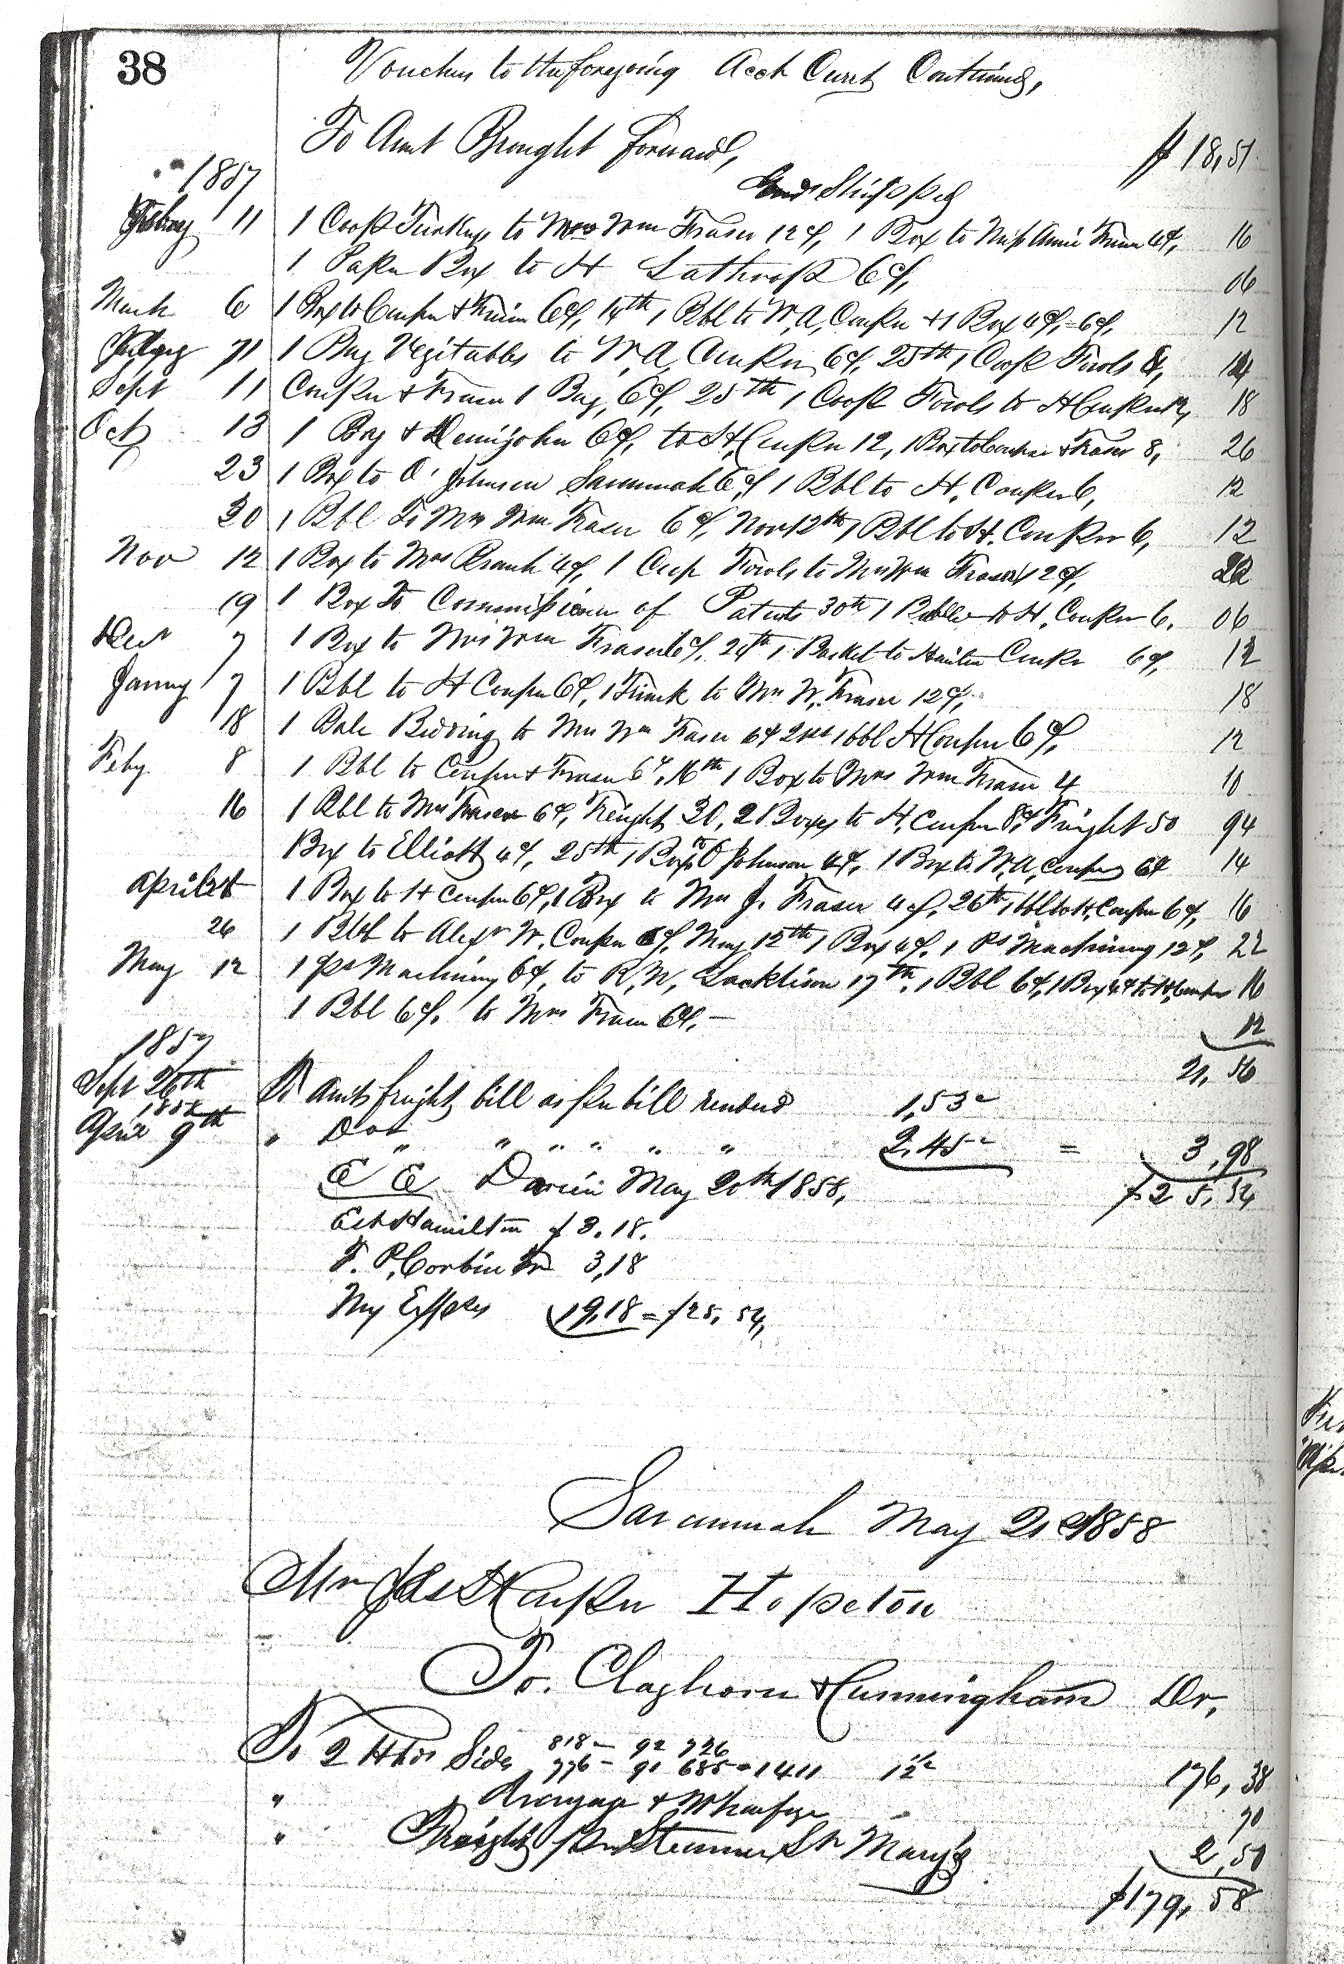 38
Vouchers to the foregoing Acct Currt Continued,
To Amt Brought forward, $18,51
1857
Shipped
Febry 11 1 Coop Turkeys to Mrs Wm Fraser 12¢, 1 Box to Miss Annie Fraser 4¢, 16
1 Paper Box to H Lathrop 6¢, 06
March 6 1 Box to Couper & Fraser 6¢, 1 Bbl to W, A, Couper & 1 Box 4¢, = 6¢, 12
1 Bag Vegitables to W, A, Couper 6¢, 25th 1 Coop Fowls 8, 14
Sept 11 Couper & Fraser 1 Bag, 6¢, 25th 1 Coop Fowls to H Couper 12, 18
Oct 13 1 Box & Demijohn 6¢, to H, Couper 12, 1 Box to Couper & Fraser 8, 26
23 1 Box to O' Johnson Savannah 6¢, 1 Bbl to H, Couper 6, 12
30 1 Bbl To Mrs Wm Fraser 6¢, Nov 12th 1 Bbl to H. Couper 6, 12
Nov 12 1 Box to Mrs 4¢, 1 Coop Fowls to Mrs Wm Fraser 12¢, 22
19 1 Box To Commissioner of Patents 30th 1 to H, Couper 6. 06
Decr 7 1 Box to Mrs Wm Fraser 6¢, 24th 1 Basket to Couper 6¢, 12
Janny 7 1 Bbl to H Couper 6¢, 1 Trunk to Mrs W, Fraser 12¢, 18
18 1 Bale Bedding to Mrs Wm Fraser 6¢ 1 bbl H Couper 6¢, 12
Feby 8 1 Bbl to Couper & Fraser 6¢, 16th 1 Box to Mrs Wm Fraser 4 10
16 1 Bbl to Mrs Fraser 6¢, Freight 30, 2 Boxes to H, Couper 8¢, Freight 50 94
Box to Elliott 4¢, 25th 1 Box to O Johnson 4¢, 1 Box to W, A, Couper 6¢ 14
April 24 1 Box to H Couper 6¢, 1 Box to Mrs J. Fraser 4¢, 26th 1 bbl to H, Couper 6¢, 16
26 1 Bbl to Alexr W, Couper 6¢, May 12th 1 Box 4¢, 1 Ps Machinery 12¢, 22
May 12 1 ps Machinery 6¢, to R, N, 17th, 1 Bbl 6¢, 1 Box 4¢ to H, Couper 16
1 Bbl 6¢, to Mrs Fraser 6¢, — 12
21, 56
1857
Sept 26th To Amts freight bill as per bill rendered 1,53
1858
April 9th " Do " " " " " 2,45 = 3,98
$25,54
E E Darien May 20th 1858,
Est Hamilton $3.18.
F. P, Corbin Tr 3,18
My Expxs 19,18 = $25, 54,
Savannah May 21st 1858
Mr Jas H Couper Hopeton
To. Claghorn & Cunningham Dr,
To 2 Hhds Sides 818 — 92 726
776 — 91 685 = 1411 12½ 176, 38
" Drayage & Wharfage 70
" Freight per Steamer St Mary's 2,50
$179, 58